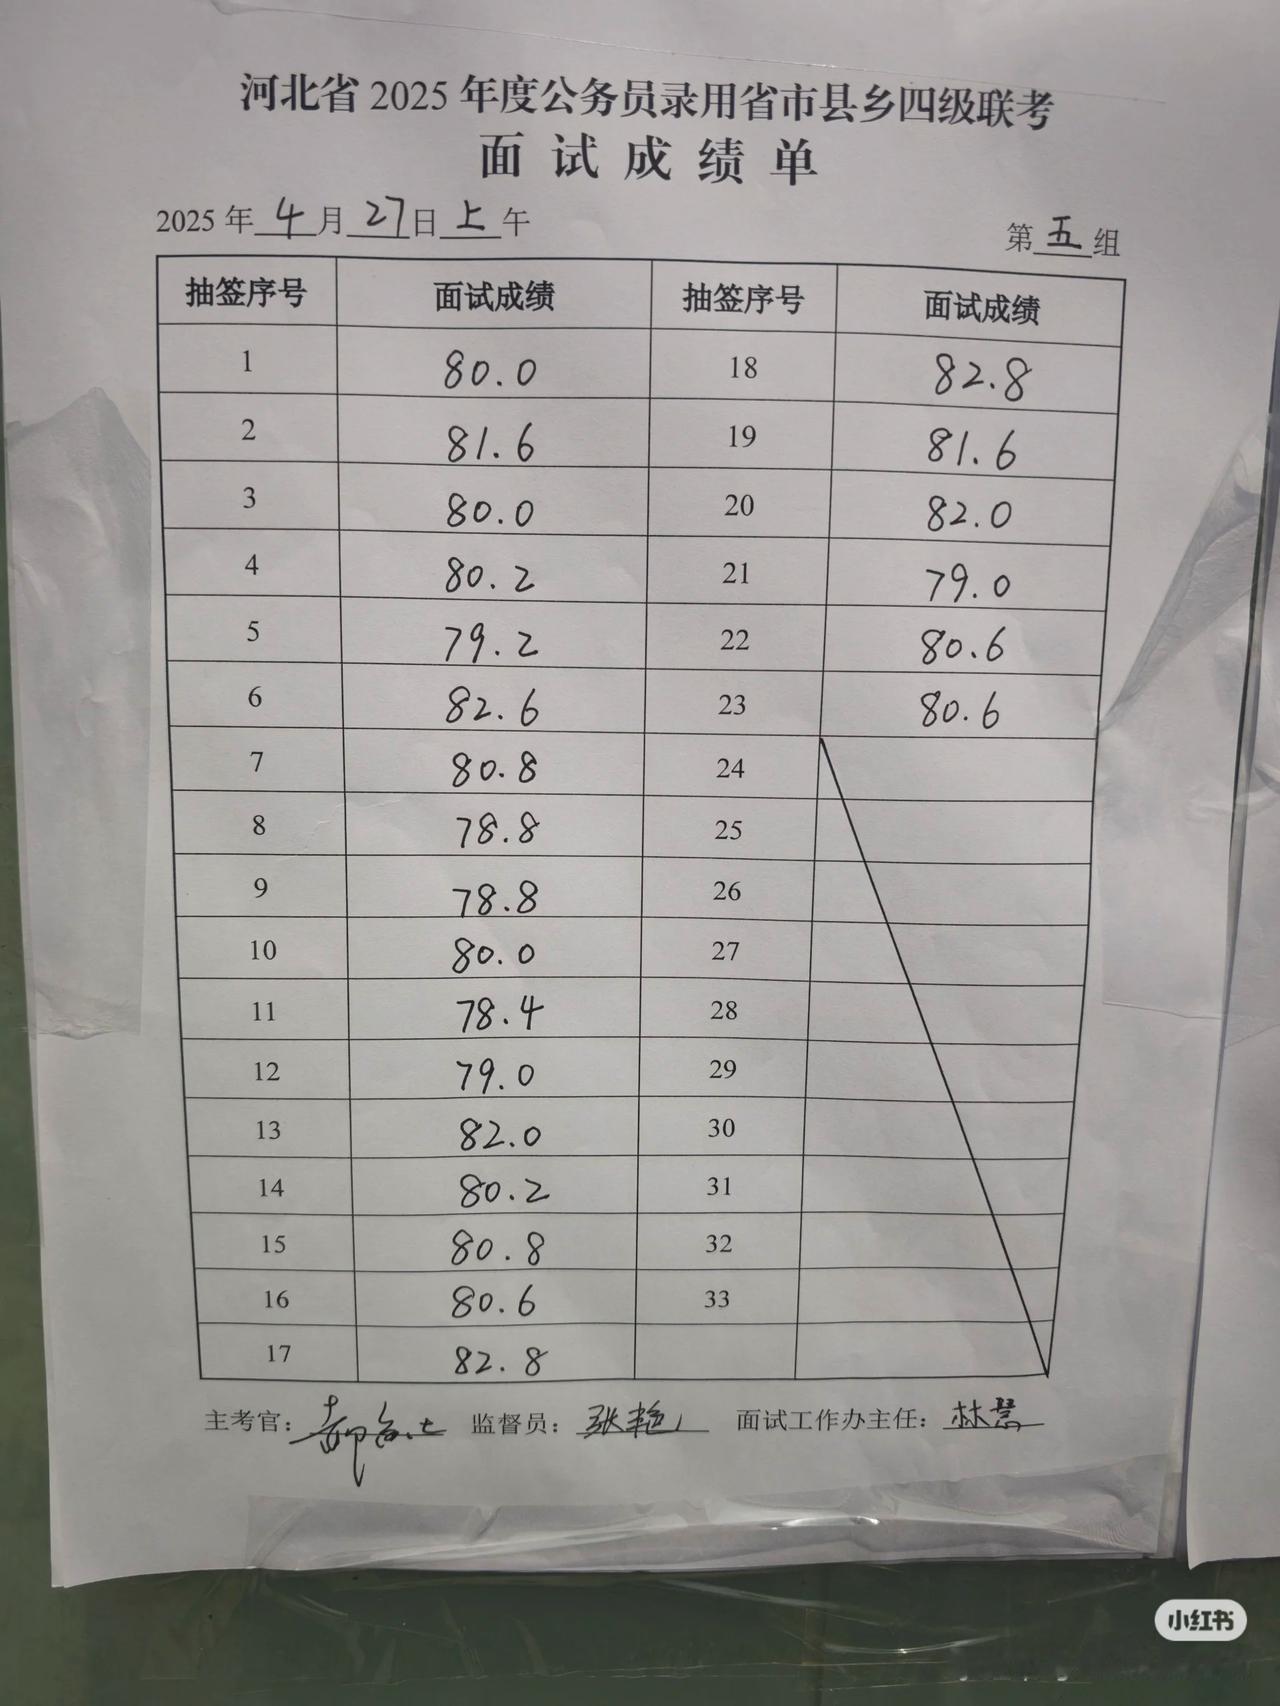 河北省 2025 年度公务员录用省市县乡四级联考
面试成绩单
2025 年 4 月 27 日 上 午
第 五 组
抽签序号 面试成绩 抽签序号 面试成绩
1 80.0 18 82.8
2 81.6 19 81.6
3 80.0 20 82.0
4 80.2 21 79.0
5 79.2 22 80.6
6 82.6 23 80.6
7 80.8 24
8 78.8 25
9 78.8 26
10 80.0 27
11 78.4 28
12 79.0 29
13 82.0 30
14 80.2 31
15 80.8 32
16 80.6 33
17 82.8
主考官： 监督员：张艳 面试工作办主任：林慧
小红书